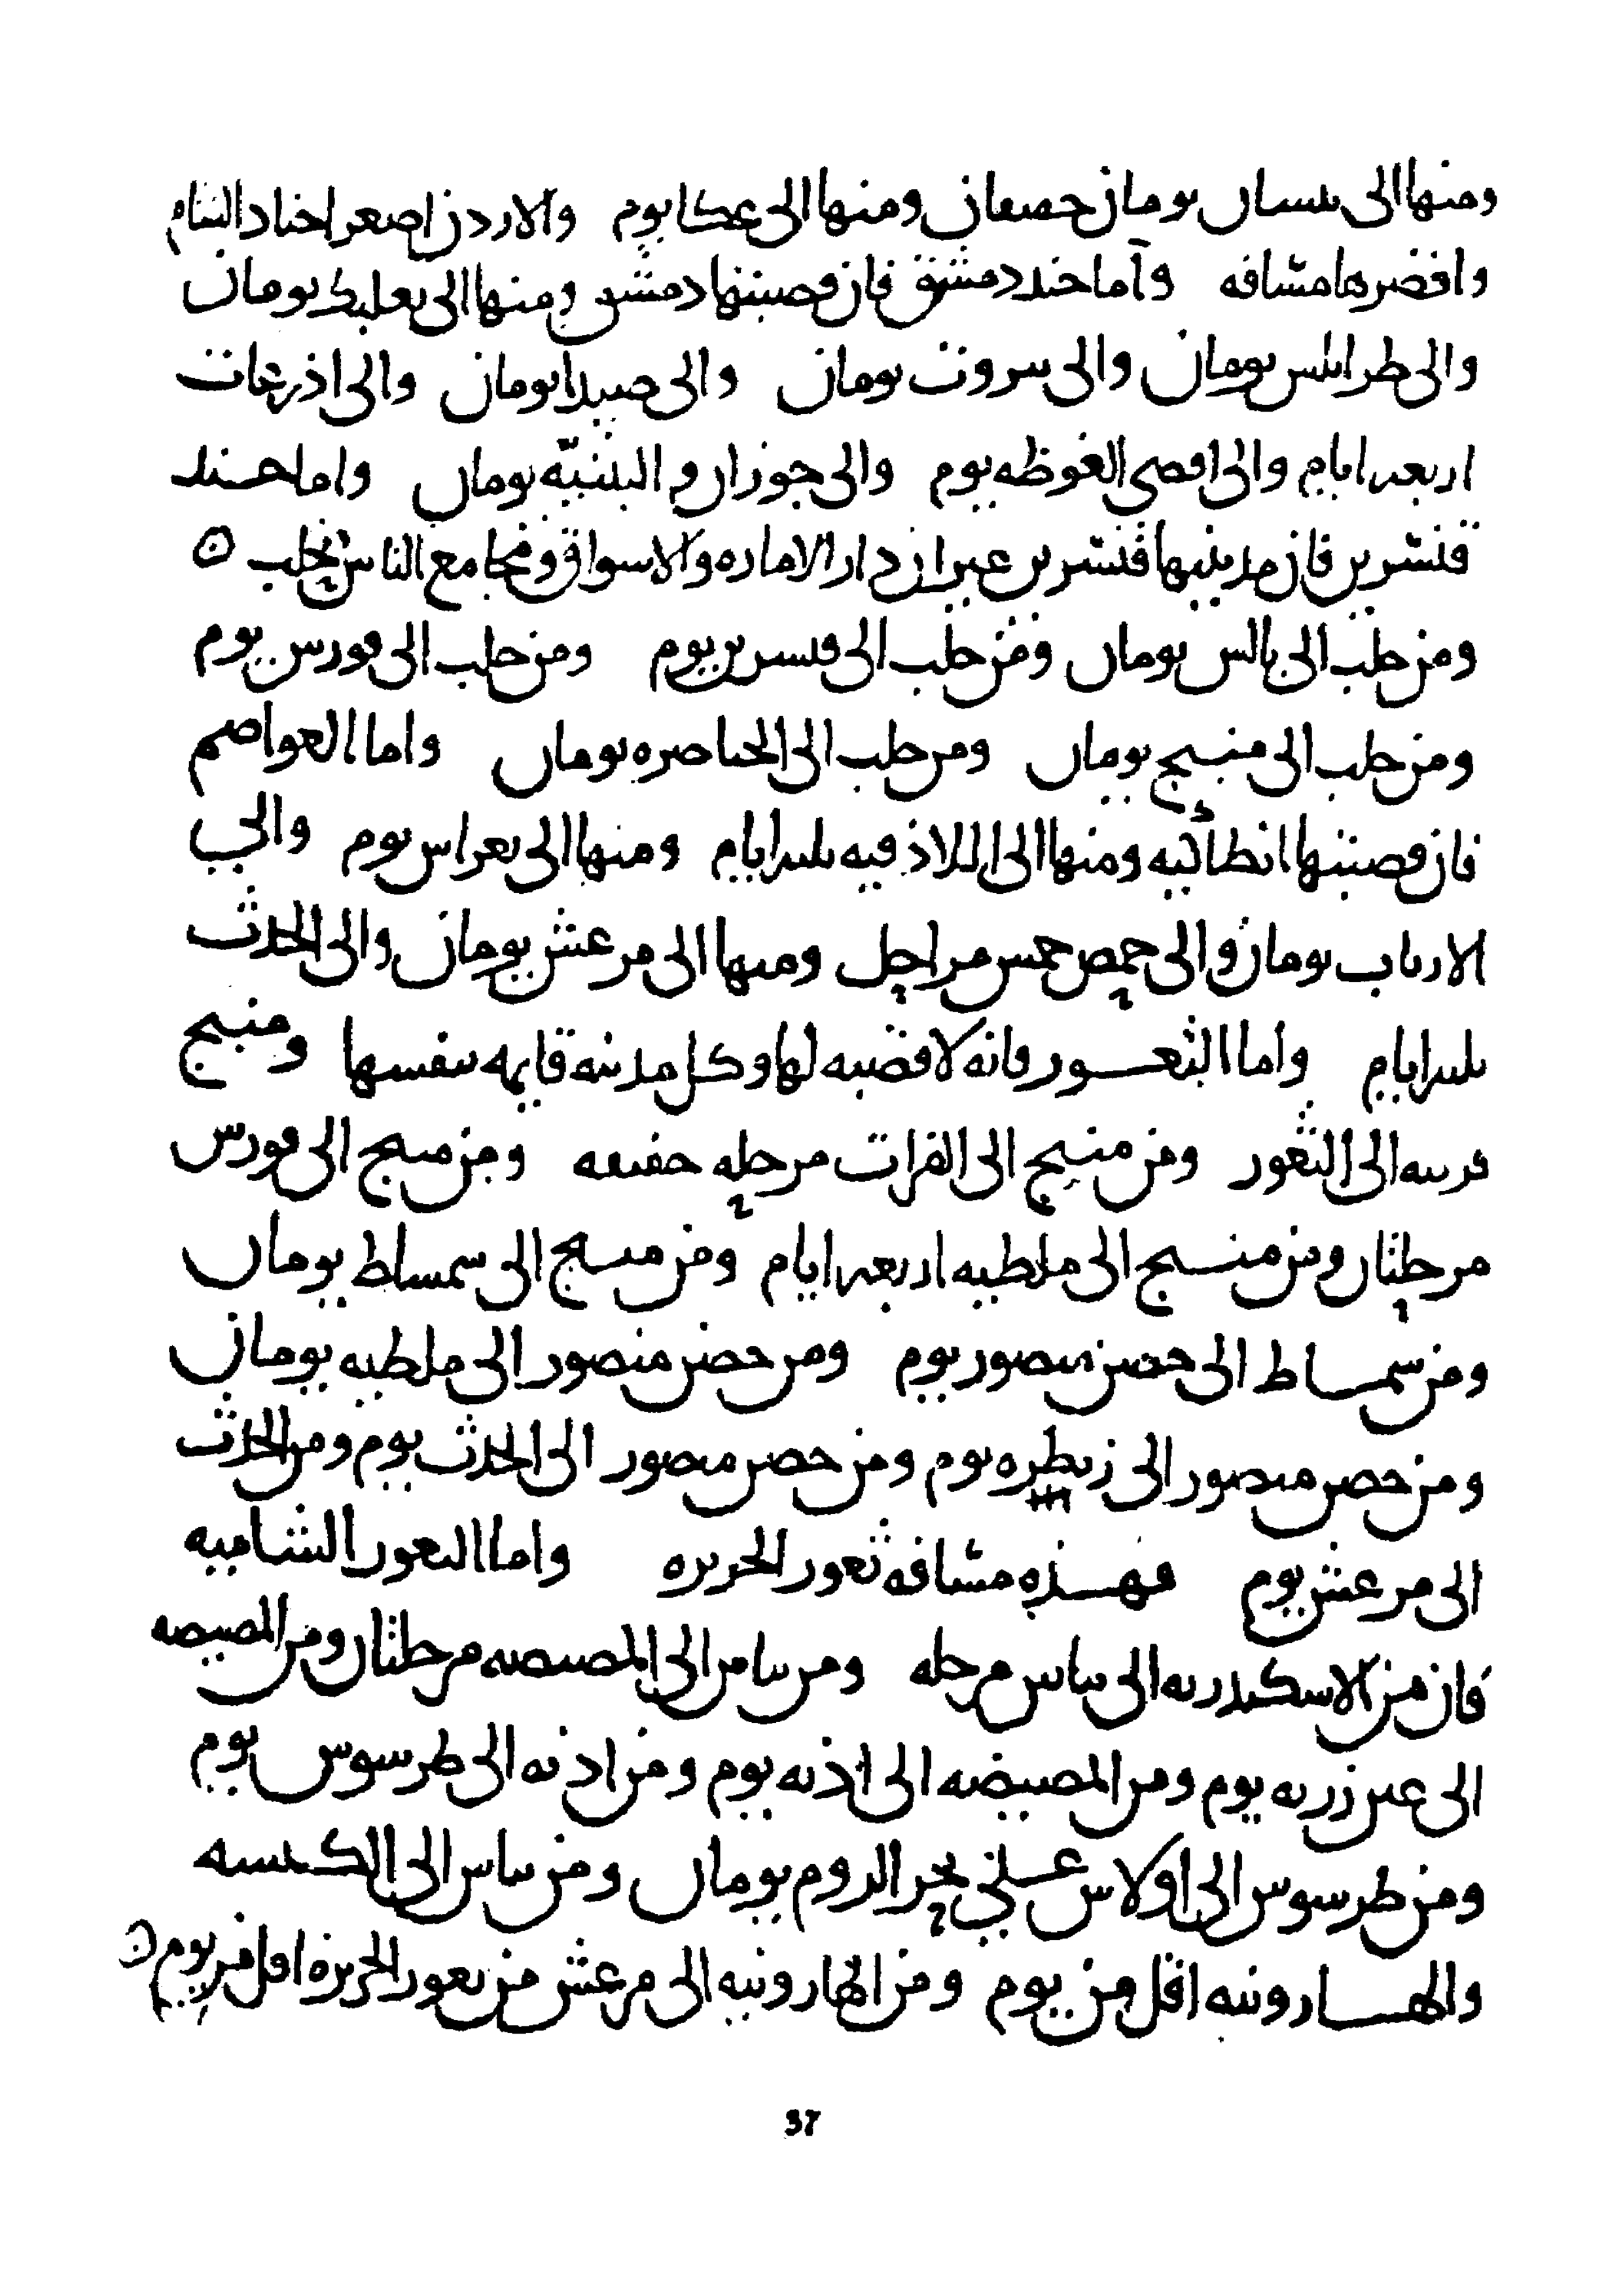 ومنها الى بلسان يومان خفيفان ومنها الى عكا يوم والاردن اصغر اجناد الشام
واقصرها مسافه واما جند دمشق فان قصبتها دمشق ومنها الى بعلبك يومان
والى طرابلس يومان والى بيروت يومان والى صيدا يومان والى اذرعات
اربعه ايام والى اقصى الغوطه يوم والى حوران والبثنيّه يومان واما جند
قنسرين فان مدينتها قنسرين غير ان دار الاماره والاسواق ومجامع الناس بحلب ٥
ومن حلب الى بالس يومان ومن حلب الى قنسرين يوم ومن حلب الى قورس يوم
ومن حلب الى منبج يومان ومن حلب الى الخناصره يومان واما العواصم
فان قصبتها انطاكيه ومنها الى اللاذقيه ثلثه ايام ومنها الى بغراس يوم والى
الارباب يومان والى حمص خمس مراحل ومنها الى مرعش يومان والى الحدث
ثلثه ايام واما الثغور فانه لا قصبه لها وكل مدينه قايمه بنفسها ومنبج
قريبه الى الثغور ومن منبج الى الفرات مرحله خفيفه ومن منبج الى قورس
مرحلتان ومن منبج الى ملطيه اربعه ايام ومن منبج الى سمساط يومان
ومن سمساط الى حصن منصور يوم ومن حصن منصور الى ملطيه يومان
ومن حصن منصور الى زبطره يوم ومن حصن منصور الى الحدث يوم ومن الحدث
الى مرعش يوم فهذه مسافه ثغور الجزيره واما الثغور الشاميه
فان من الاسكندريه الى بياس مرحله ومن بياس الى المصيصه مرحلتان ومن المصيصه
الى عين زربه يوم ومن المصيصه الى اذنه يوم ومن اذنه الى طرسوس يوم
ومن طرسوس الى اولاس على بحر الروم يومان ومن بياس الى الكنيسه
والهارونيه اقل من يوم ومن الهارونيه الى مرعش من ثغور الجزيره اقل من يوم ن
37